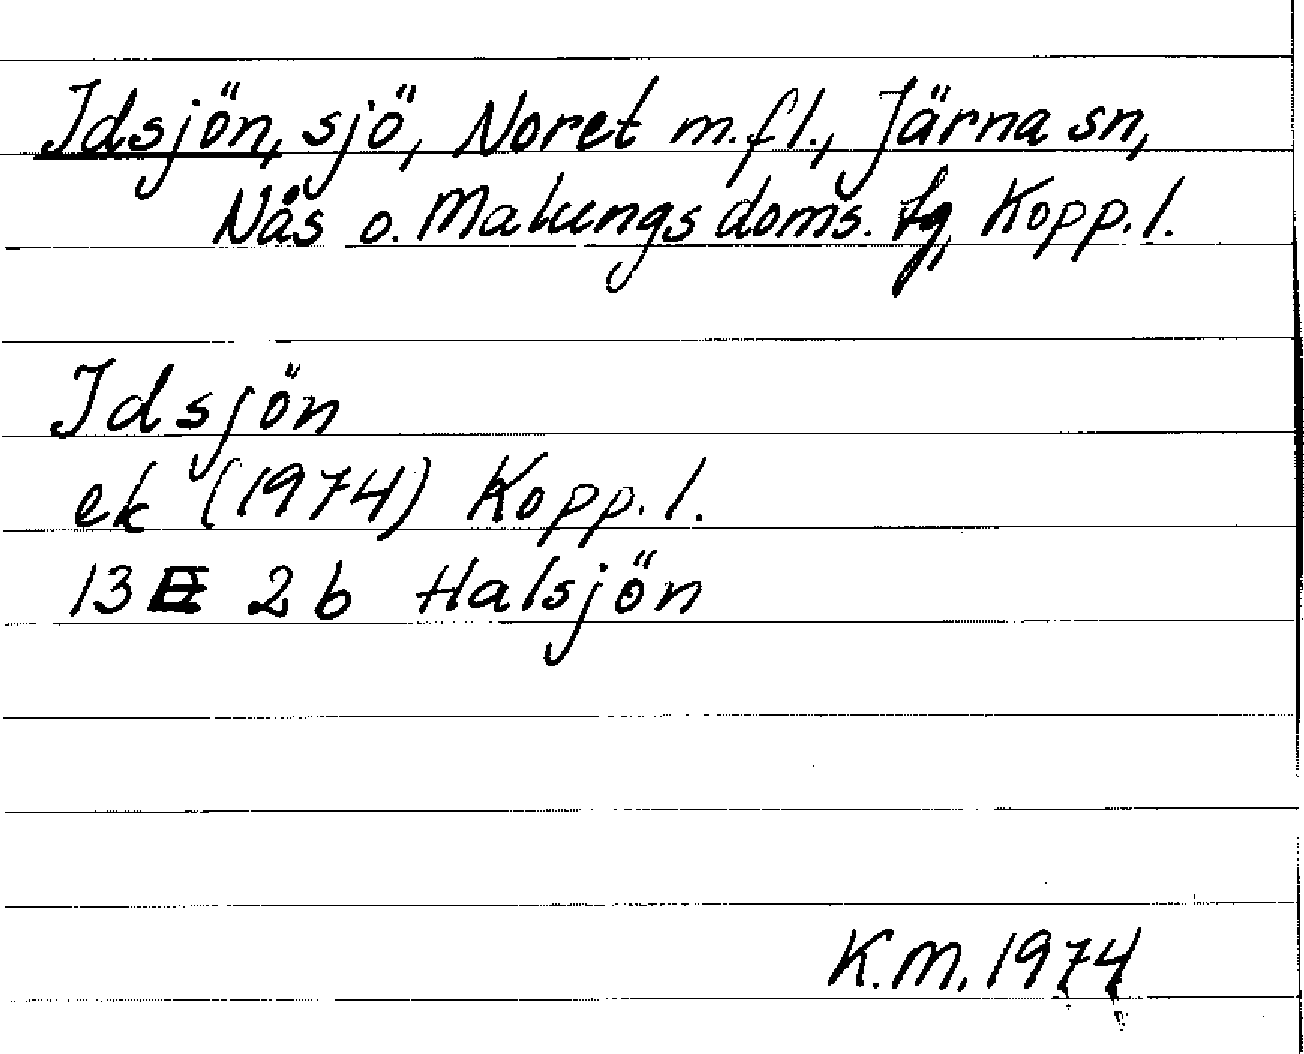 Idsjön, sjö, Noret m.fl., Järna sn,
Nås o. Malungs doms. tg, Kopp. l.
Idsjön
ek (1974) Kopp. l.
13 E 2 b Halsjön
K.M. 1974